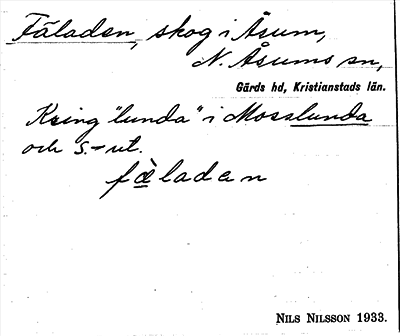 Fäladen, skog i Åsum,
N. Åsums sn,
Gärds hd, Kristianstads län.
Kring "lunda" i Mosslunda
och S.-ut.
fäladen
NILS NILSSON 1933.